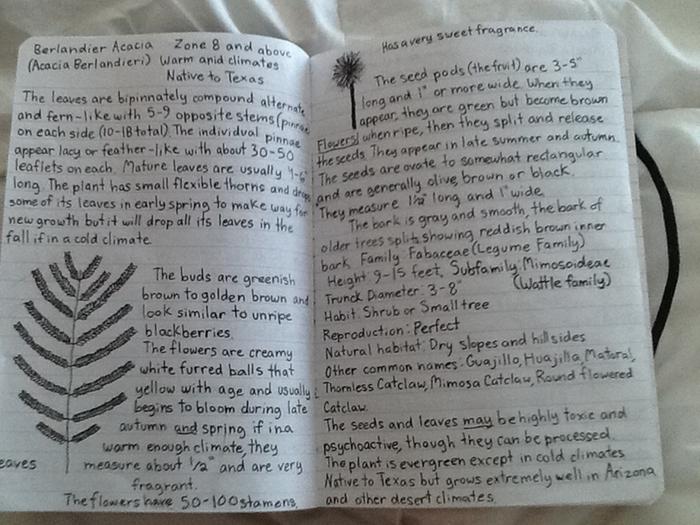 Berlandier Acacia Zone 8 and above
(Acacia Berlandieri) Warm arid climates
Native to Texas
The leaves are bipinnately compound alternate
and fern-like with 5-9 opposite stems (pinnae)
on each side (10-18 total). The individual pinnae
appear lacy or feather-like with about 30-50
leaflets on each. Mature leaves are usually 4-6"
long. The plant has small flexible thorns and drops
some of its leaves in early spring to make way for
new growth but it will drop all its leaves in the
fall if in a cold climate.
The buds are greenish
brown to golden brown and
look similar to unripe
blackberries.
The flowers are creamy
white furred balls that
yellow with age and usually
begins to bloom during late
autumn and spring if in a
warm enough climate, they
measure about 1/2" and are very
fragrant.
The flowers have 50-100 stamens.
eaves
Has a very sweet fragrance.
Flowers
The seed pods (the fruit) are 3-5"
long and 1" or more wide. When they
appear, they are green but become brown
when ripe, then they split and release
the seeds. They appear in late summer and autumn.
The seeds are ovate to somewhat rectangular
and are generally olive, brown or black.
They measure 1 1/2" long and 1" wide.
The bark is gray and smooth, the bark of
older trees splits showing reddish brown inner
bark. Family: Fabaceae (Legume Family)
Height: 9-15 feet, Subfamily: Mimosoideae
Trunck Diameter: 3-8" (Wattle family)
Habit: Shrub or Small tree
Reproduction: Perfect
Natural habitat: Dry slopes and hillsides
Other common names: Guajillo, Huajilla, Matoral,
Thornless Catclaw, Mimosa Catclaw, Round flowered
Catclaw.
The seeds and leaves may be highly toxic and
psychoactive, though they can be processed.
The plant is evergreen except in cold climates
Native to Texas but grows extremely well in Arizona
and other desert climates.